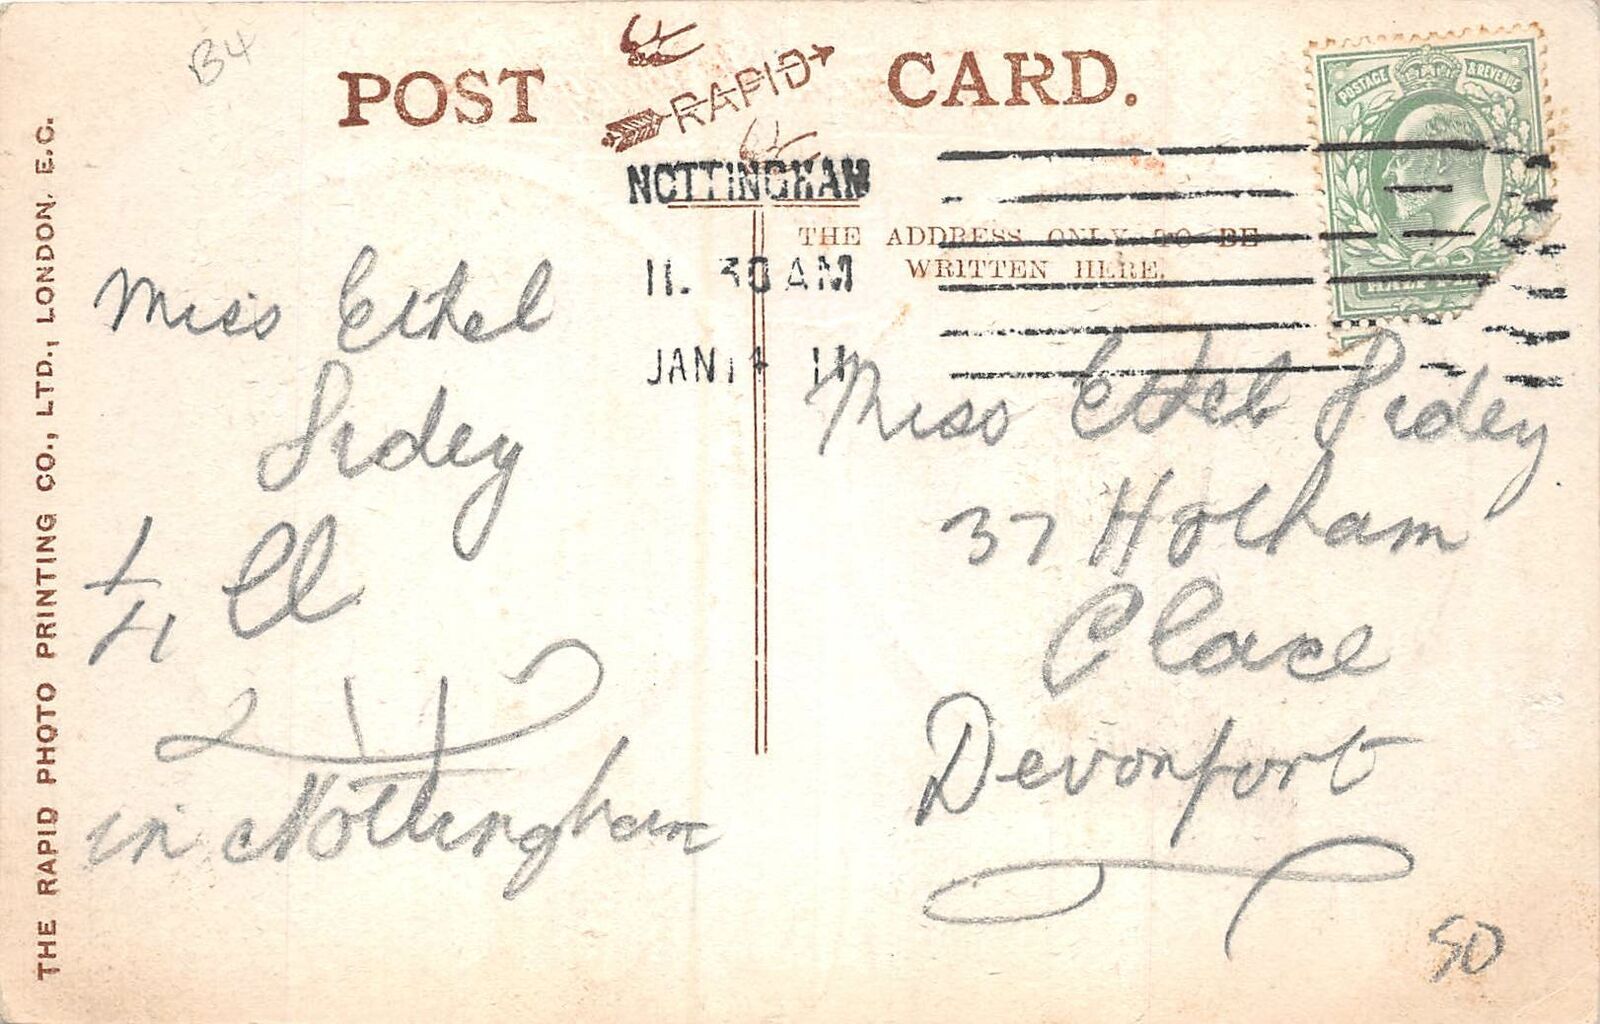 B4
POST CARD.
RAPID
NOTTINGHAM
11. 30 AM
JAN 14 11
THE ADDRESS ONLY TO BE
WRITTEN HERE.
POSTAGE & REVENUE
THE RAPID PHOTO PRINTING CO., LTD., LONDON, E.C.
Miss Ethel
Sidey
in Nottingham
Miss Ethel Sidey
37 Hotham
Place
Devonport
50